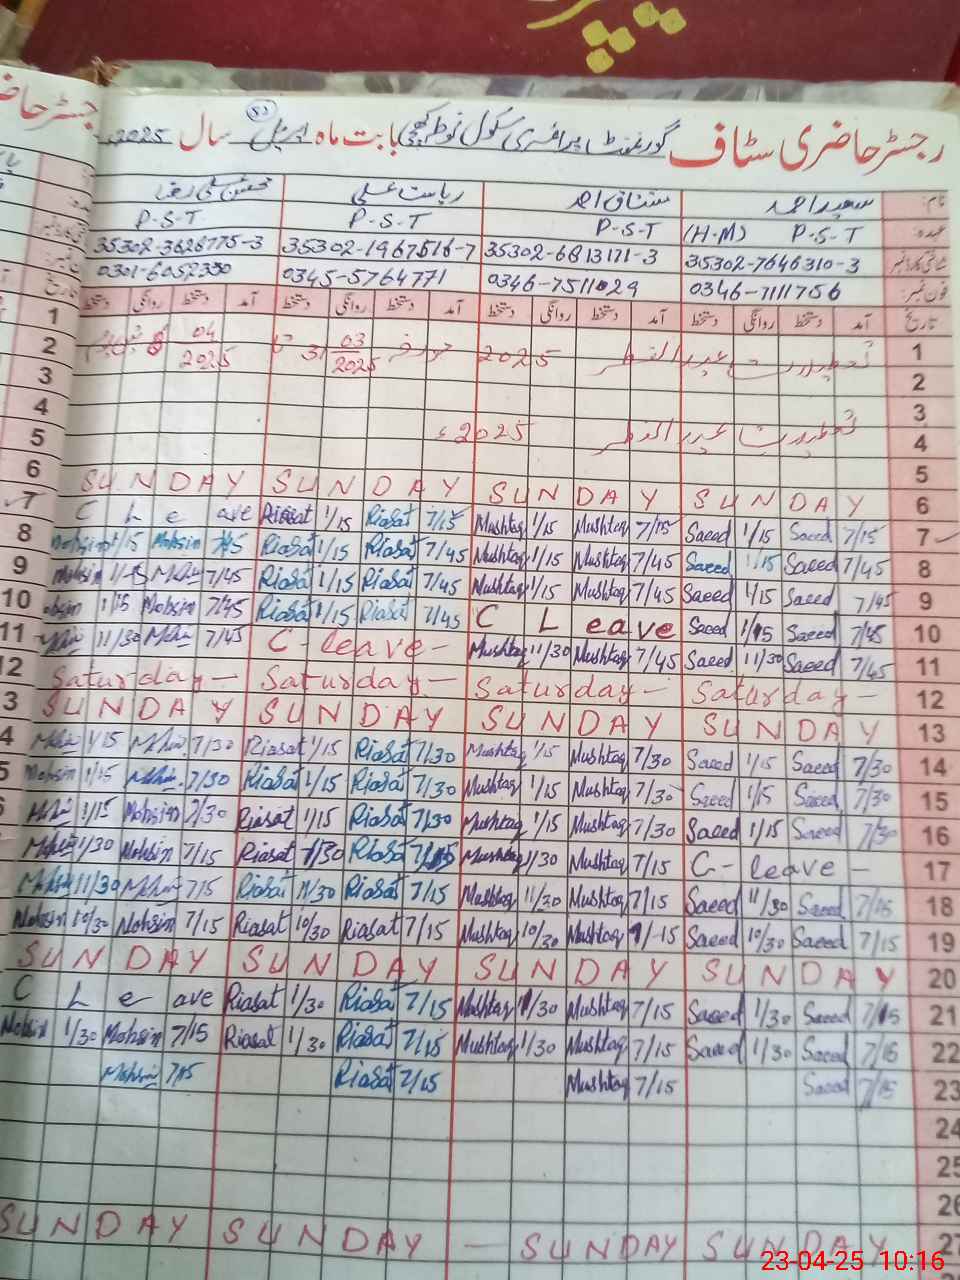 رجسٹر حاضری سٹاف گورنمنٹ پرائمری سکول بابت ماہ اپریل سال 2025
نام: سعید احمد مشتاق احمد ریاست علی محسن علی رضا
عہدہ: P-S-T (H-M) P-S-T P-S-T P-S-T
شناختی کارڈ نمبر 35302-7646310-3 35302-6813171-3 35302-1967516-7 35302-3628775-3
فون نمبر: 0346-7111756 0346-7511029 0345-5764771 0301-6052330
تاریخ آمد دستخط روانگی دستخط آمد دستخط روانگی دستخط آمد دستخط روانگی دستخط آمد دستخط روانگی دستخط
1 تعطیلات عید الفطر 2025 مورخہ 31 03 2025 تا 04 2025
2
3
4 تعطیلات عید الفطر 2025ء
5
SUNDAY SUNDAY SUNDAY SUNDAY 6
C Leave Riasat 1/15 Riasat 7/15 Mushtaq 1/15 Mushtaq 7/15 Saeed 1/15 Saeed 7/15 7
Mohsin 1/15 Mohsin 7/45 Riasat 1/15 Riasat 7/45 Mushtaq 1/15 Mushtaq 7/45 Saeed 1/15 Saeed 7/45 8
Mohsin 1/15 Mohsin 7/45 Riasat 1/15 Riasat 7/45 Mushtaq 1/15 Mushtaq 7/45 Saeed 1/15 Saeed 7/45 9
Mohsin 1/15 Mohsin 7/45 Riasat 1/15 Riasat 7/45 C Leave Saeed 1/15 Saeed 7/45 10
Mohsin 11/30 Mohsin 7/45 C-leave- Mushtaq 11/30 Mushtaq 7/45 Saeed 11/30 Saeed 7/45 11
Saturday- Saturday- Saturday- Saturday- 12
SUNDAY SUNDAY SUNDAY SUNDAY 13
Mohsin 1/15 Mohsin 7/30 Riasat 1/15 Riasat 7/30 Mushtaq 1/15 Mushtaq 7/30 Saeed 1/15 Saeed 7/30 14
Mohsin 1/15 Mohsin 7/30 Riasat 1/15 Riasat 7/30 Mushtaq 1/15 Mushtaq 7/30 Saeed 1/15 Saeed 7/30 15
Mohsin 1/15 Mohsin 7/30 Riasat 1/15 Riasat 7/30 Mushtaq 1/15 Mushtaq 7/30 Saeed 1/15 Saeed 7/30 16
Mohsin 1/30 Mohsin 7/15 Riasat 1/30 Riasat 7/15 Mushtaq 1/30 Mushtaq 7/15 C-leave - 17
Mohsin 11/30 Mohsin 7/15 Riasat 11/30 Riasat 7/15 Mushtaq 11/30 Mushtaq 7/15 Saeed 11/30 Saeed 7/15 18
Mohsin 10/30 Mohsin 7/15 Riasat 10/30 Riasat 7/15 Mushtaq 10/30 Mushtaq 7/15 Saeed 10/30 Saeed 7/15 19
SUNDAY SUNDAY SUNDAY SUNDAY 20
C Leave Riasat 1/30 Riasat 7/15 Mushtaq 1/30 Mushtaq 7/15 Saeed 1/30 Saeed 7/15 21
Mohsin 1/30 Mohsin 7/15 Riasat 1/30 Riasat 7/15 Mushtaq 1/30 Mushtaq 7/15 Saeed 1/30 Saeed 7/15 22
Mohsin 7/15 Riasat 7/15 Mushtaq 7/15 Saeed 7/15 23
24
25
26
SUNDAY SUNDAY - SUNDAY SUNDAY 27
23-04-25 10:16